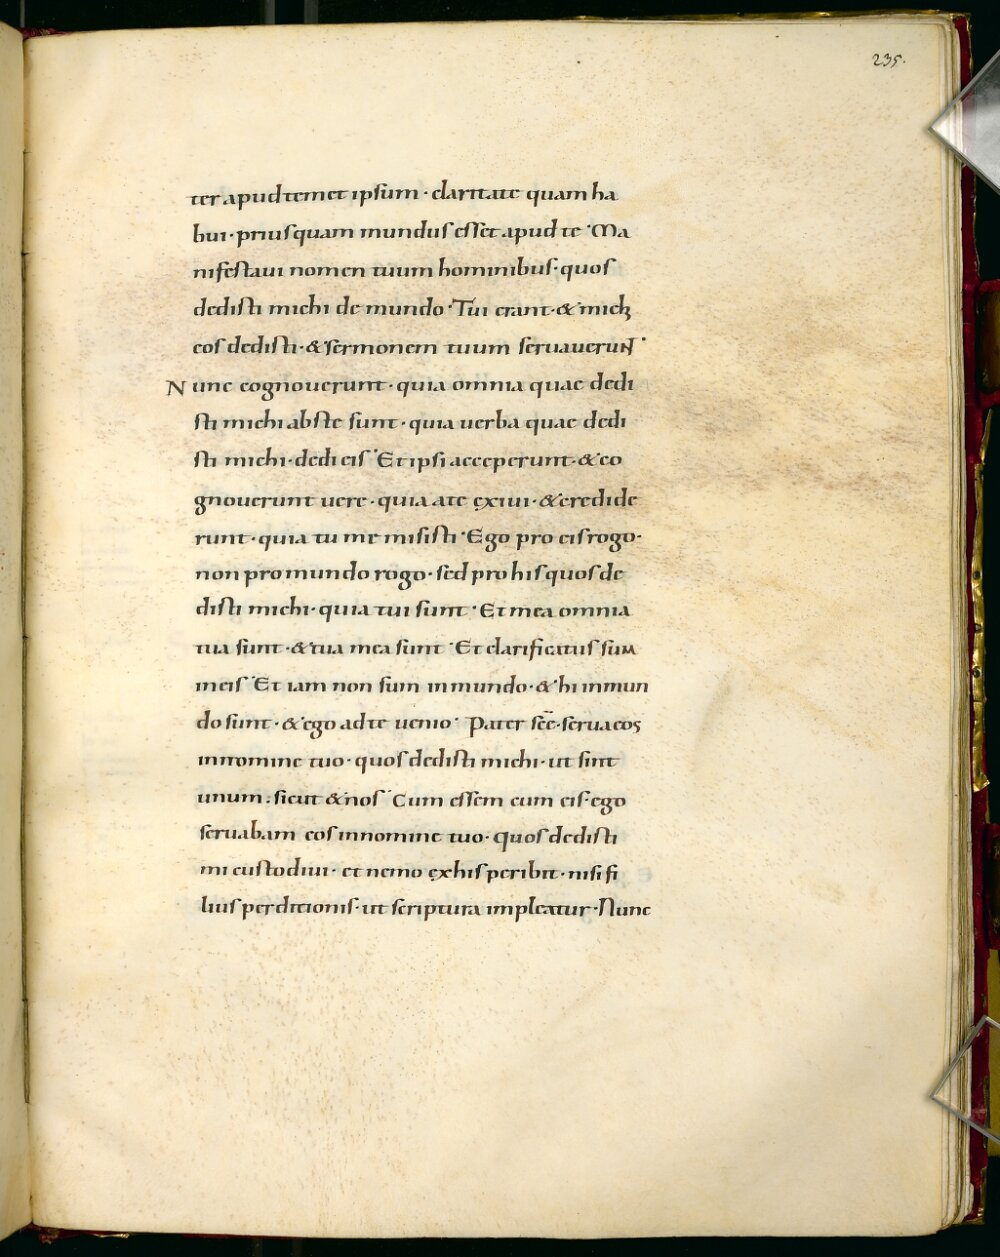 235.
ter apud temet ipsum · claritate quam ha
bui · priusquam mundus esset apud te · Ma
nifestaui nomen tuum hominibus · quos
dedisti michi de mundo · Tui erant · & mich
eos dedisti · & sermonem tuum seruauerunt ·
Nunc cognouerunt · quia omnia quae dedi
sti michi abs te sunt · quia uerba quae dedi
sti michi · dedi eis · Et ipsi acceperunt · & co
gnouerunt uere · quia a te exiui · & credide
runt · quia tu me misisti · Ego pro eis rogo ·
non pro mundo rogo · sed pro his quos de
disti michi · quia tui sunt · Et mea omnia
tua sunt · & tua mea sunt · Et clarificatus sum
in eis · Et iam non sum in mundo · & hi in mun
do sunt · & ego ad te uenio · Pater sc̄e · serua eos
in nomine tuo · quos dedisti michi · ut sint
unum · sicut & nos · Cum essem cum eis · ego
seruabam eos in nomine tuo · quos dedisti
mi custodiui · et nemo ex his peribit · nisi fi
lius perditionis · ut scriptura impleatur · Nunc